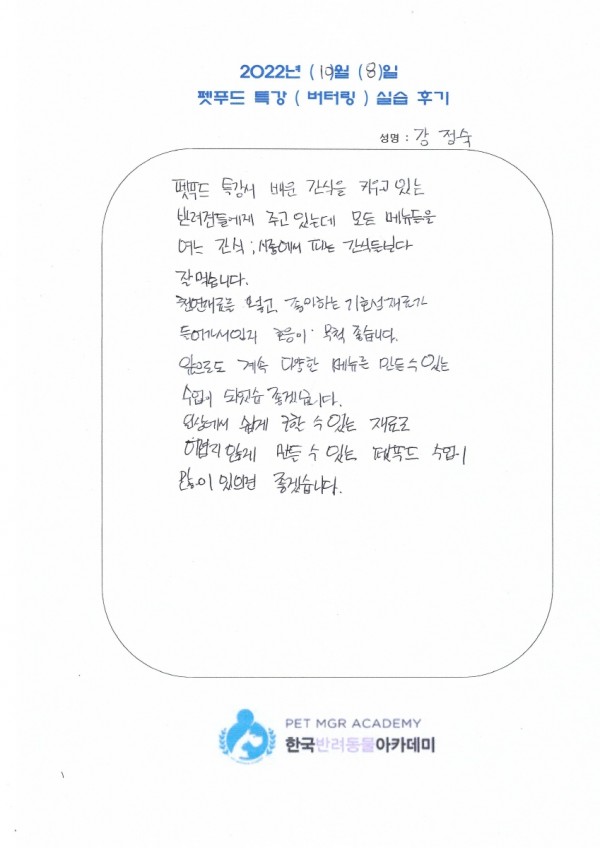 2022년 (10)월 (8)일
펫푸드 특강 ( 버터링 ) 실습 후기
성명 : 강 정숙
펫푸드 특강서 배운 간식을 키우고 있는
반려견들에게 주고 있는데 모든 메뉴들을
여느 간식, 시중에서 파는 간식들보다
잘먹습니다.
천연재료를 넣고, 좋아하는 기호성재료가
들어가서인지 호응이 무척 좋습니다.
앞으로도 계속 다양한 메뉴를 만들수 있는
수업이 되었슴 좋겠습니다.
일상에서 쉽게 구할 수 있는 재료로
어렵지 않게 만들 수 있는 펫푸드 수업이
많이 있으면 좋겠습니다.
PET MGR ACADEMY
한국반려동물아카데미